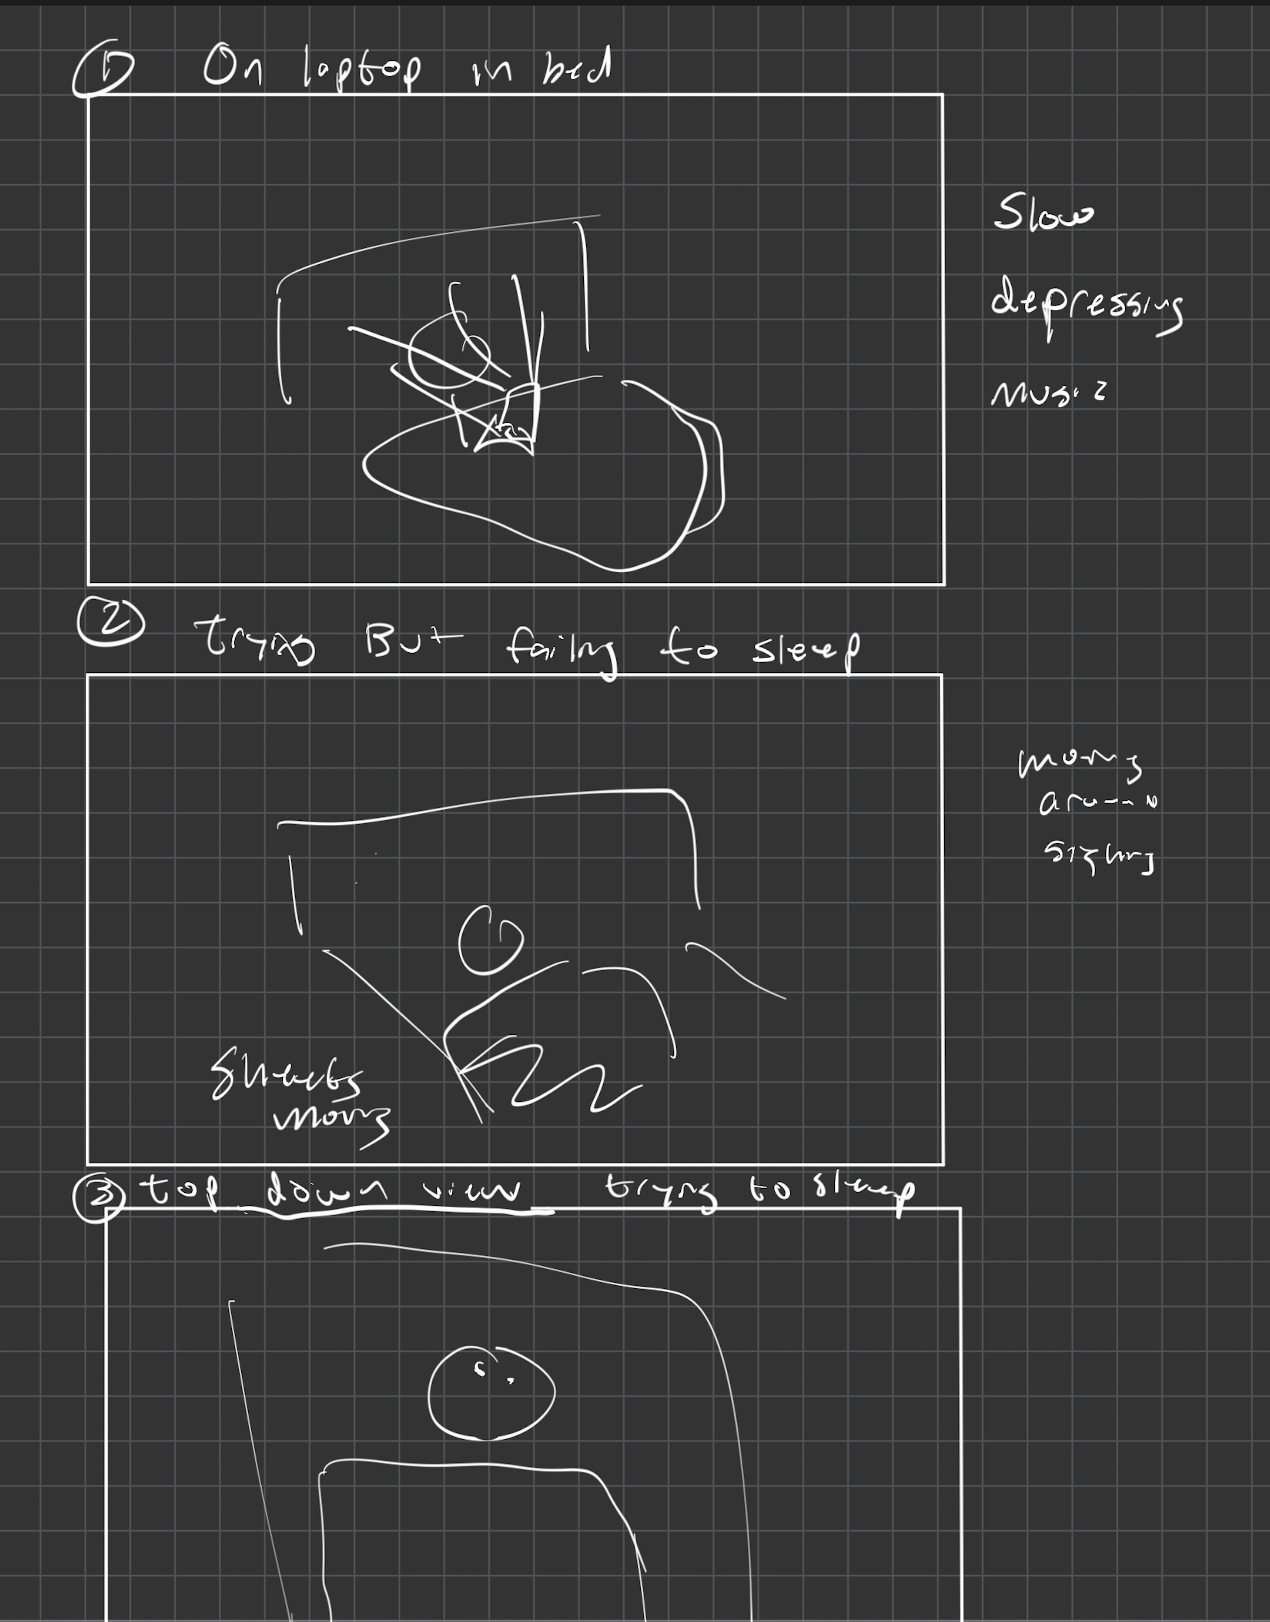 ① On laptop in bed
Slow
depressing
Music
② trying But failing to sleep
moving
around
sighing
Sheets
moving
③ top down view trying to sleep